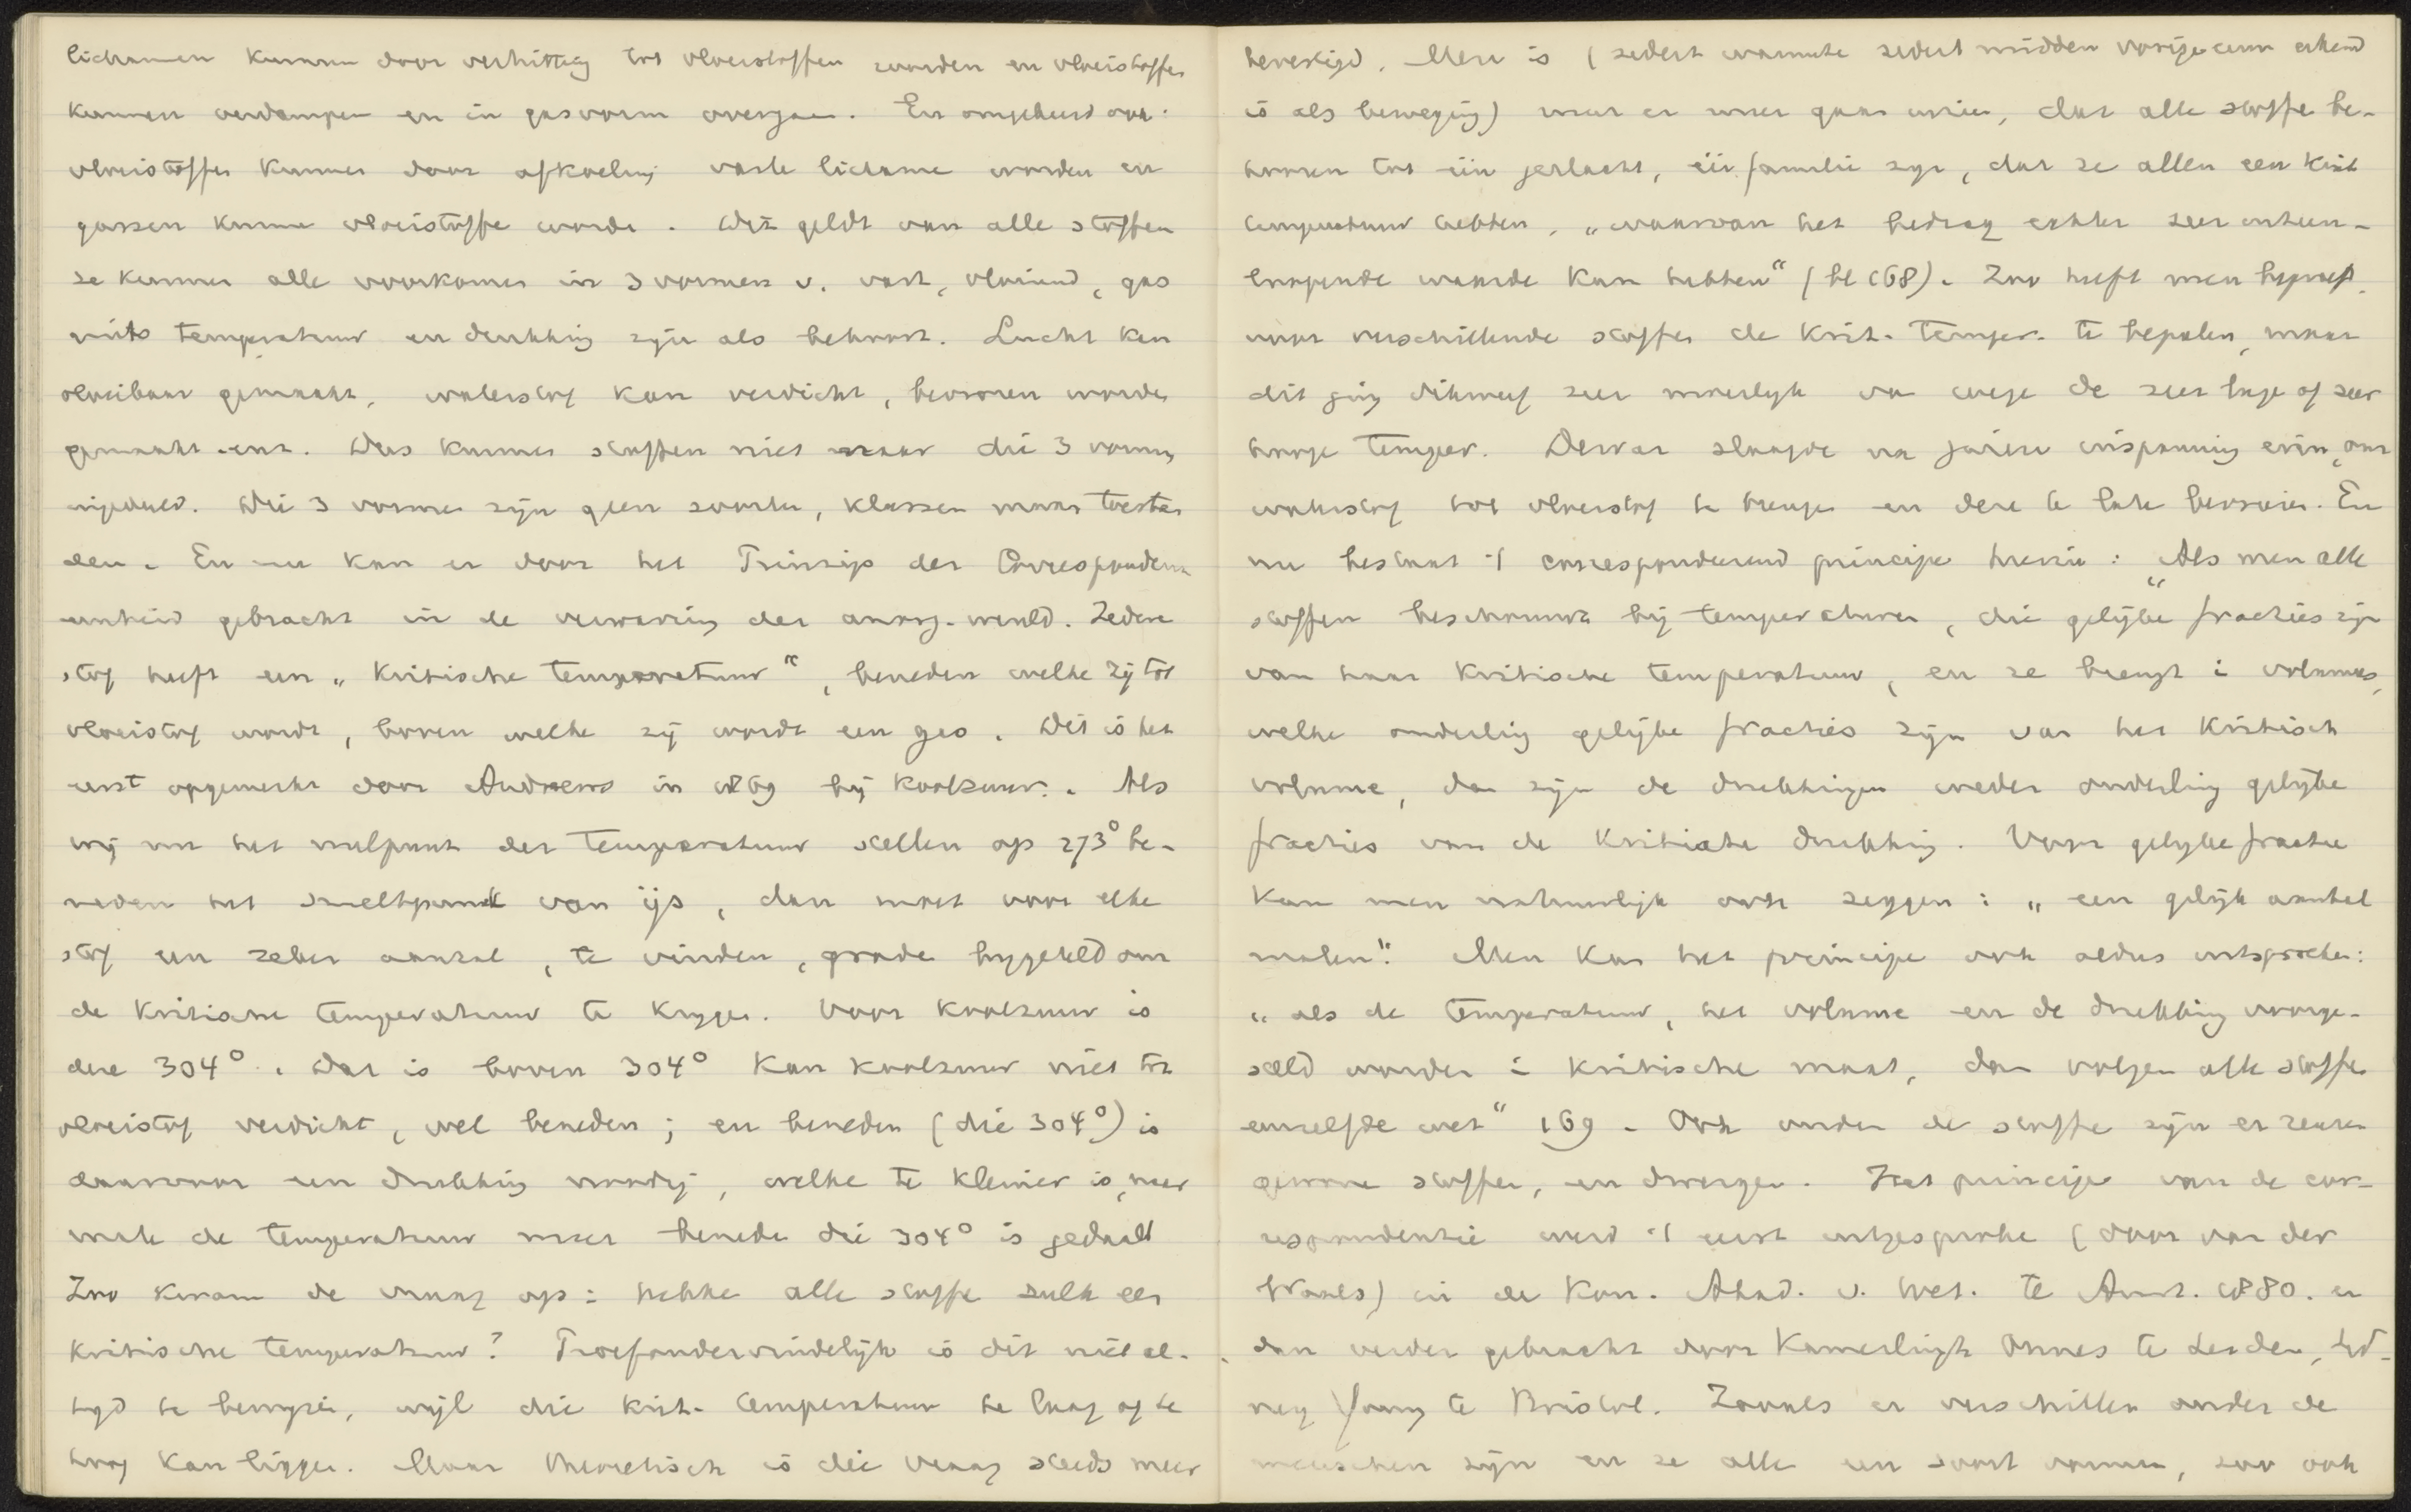 lichamen kunnen door verhitting tot vloeistoffen worden en vloeistoffen
kunnen verdampen en in gasvorm overgaan. En omgekeerd ook:
vloeistoffen kunnen door afkoeling vaste lichame worden en
gassen kunne vloeistoffe worde. Dit geldt van alle stoffen
ze kunnen alle voorkomen in 3 vormen v. vast, vloeiend, gas
mits temperatuur en drukking zijn als behoort. Lucht kan
vloeibaar gemaakt, waterstof kan verdicht, bevroren worde
gemaakt enz. Dus kunnen stoffen niet naar die 3 vormen
ingedeeld. Die 3 vormen zijn geen soorten, klassen maar toestan
den. En nu kan er door het Prinzip der Correspondenz
eenheid gebracht in de verwarring der anorg. wereld. Iedere
stof heeft een „kritische temperatuur“, beneden welke zij tot
vloeistof wordt, boven welke zij wordt een gas. Dit is het
eerst opgemerkt door Andrews in 1869 bij koolzuur. Als
wij nu het nulpunt der temperatuur stellen op 273° be-
neden het smeltpunt van ijs, dan moet voor elke
stof een zeker aantal, te vinden, grade bygeteld om
de kritische temperatuur te krygen. Voor koolzuur is
deze 304°. Dat is boven 304° kan koolzuur niet tot
vloeistof verdicht, wel beneden; en beneden (die 304°) is
daarvoor een drukking noodig, welke te kleiner is, naar
mate de temperatuur meer benede die 304° is gedaald
Zoo kwam de vraag op: hebbe alle stoffe zulk een
kritische temperatuur? Proefondervindelijk is dit niet al-
tyd te bewyzen, wijl die krit. temperatuur te laag of te
hoog kan liggen. Maar theoretisch is die vraag steeds meer
bevestigd. Men is (sedert warmte sedert midden vorige eeuw erkend
is als beweging) meer en meer gaan inzien, dat alle stoffe be-
hooren tot één geslacht, één familie zyn, dat ze allen een krit
temperatuur hebben, „waarvan het bedrag echter zeer uiteen-
loopende waarde kan hebben“ (bl 168). Zoo heeft men beproefd,
voor verschillende stoffen de krit. temper. te bepalen, maar
dit ging dikwerf zeer moeilyk van wege de zeer lage of zeer
hooge temper. Dewar slaagde na jaren inspanning erin, om
waterstof tot vloeistof te brengen en deze te late bevriezen. En
nu bestaat 't corresponderend principe hierin: „Als men alle
stoffen beschouwt bij temperaturen, die gelijke fracties zijn
van haar kritische temperatuur, en ze brengt i volumes,
welke onderling gelijke fracties zijn van het kritisch
volume, dan zijn de drukkingen weder onderling gelijke
fracties van de kritische drukking. Voor gelijke fractie
kan men natuurlijk ook zeggen: „een gelijk aantal
malen“. Men kan het principe ook aldus uitspreken:
„als de temperatuur, het volume en de drukking voorge-
steld worden i kritische maat, dan volgen alle stoffe
eenzelfde wet“ 169. Ook onder de stoffe zijn er reuzen
gewone stoffen, en dwergen. Het principe van de cor-
respondentie werd 't eerst uitgesproke (door van der
Waals) in de Kon. Akad. v. Wet. te Amst. 1880. en
dan verder gebracht door Kamerlingh Onnes te Leiden, Syd-
ney Young te Bristol. Zooals er verschillen onder de
menschen zijn en ze alle een soort vormen, zoo ook